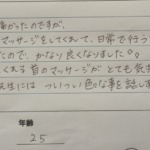 痛かったのですが、
マッサージをしてくれて、日常で行う
たので かなり良くなりました。
くれる首のマッサージが とても気
先生には ついつい色々な事を話しま
年齢
25